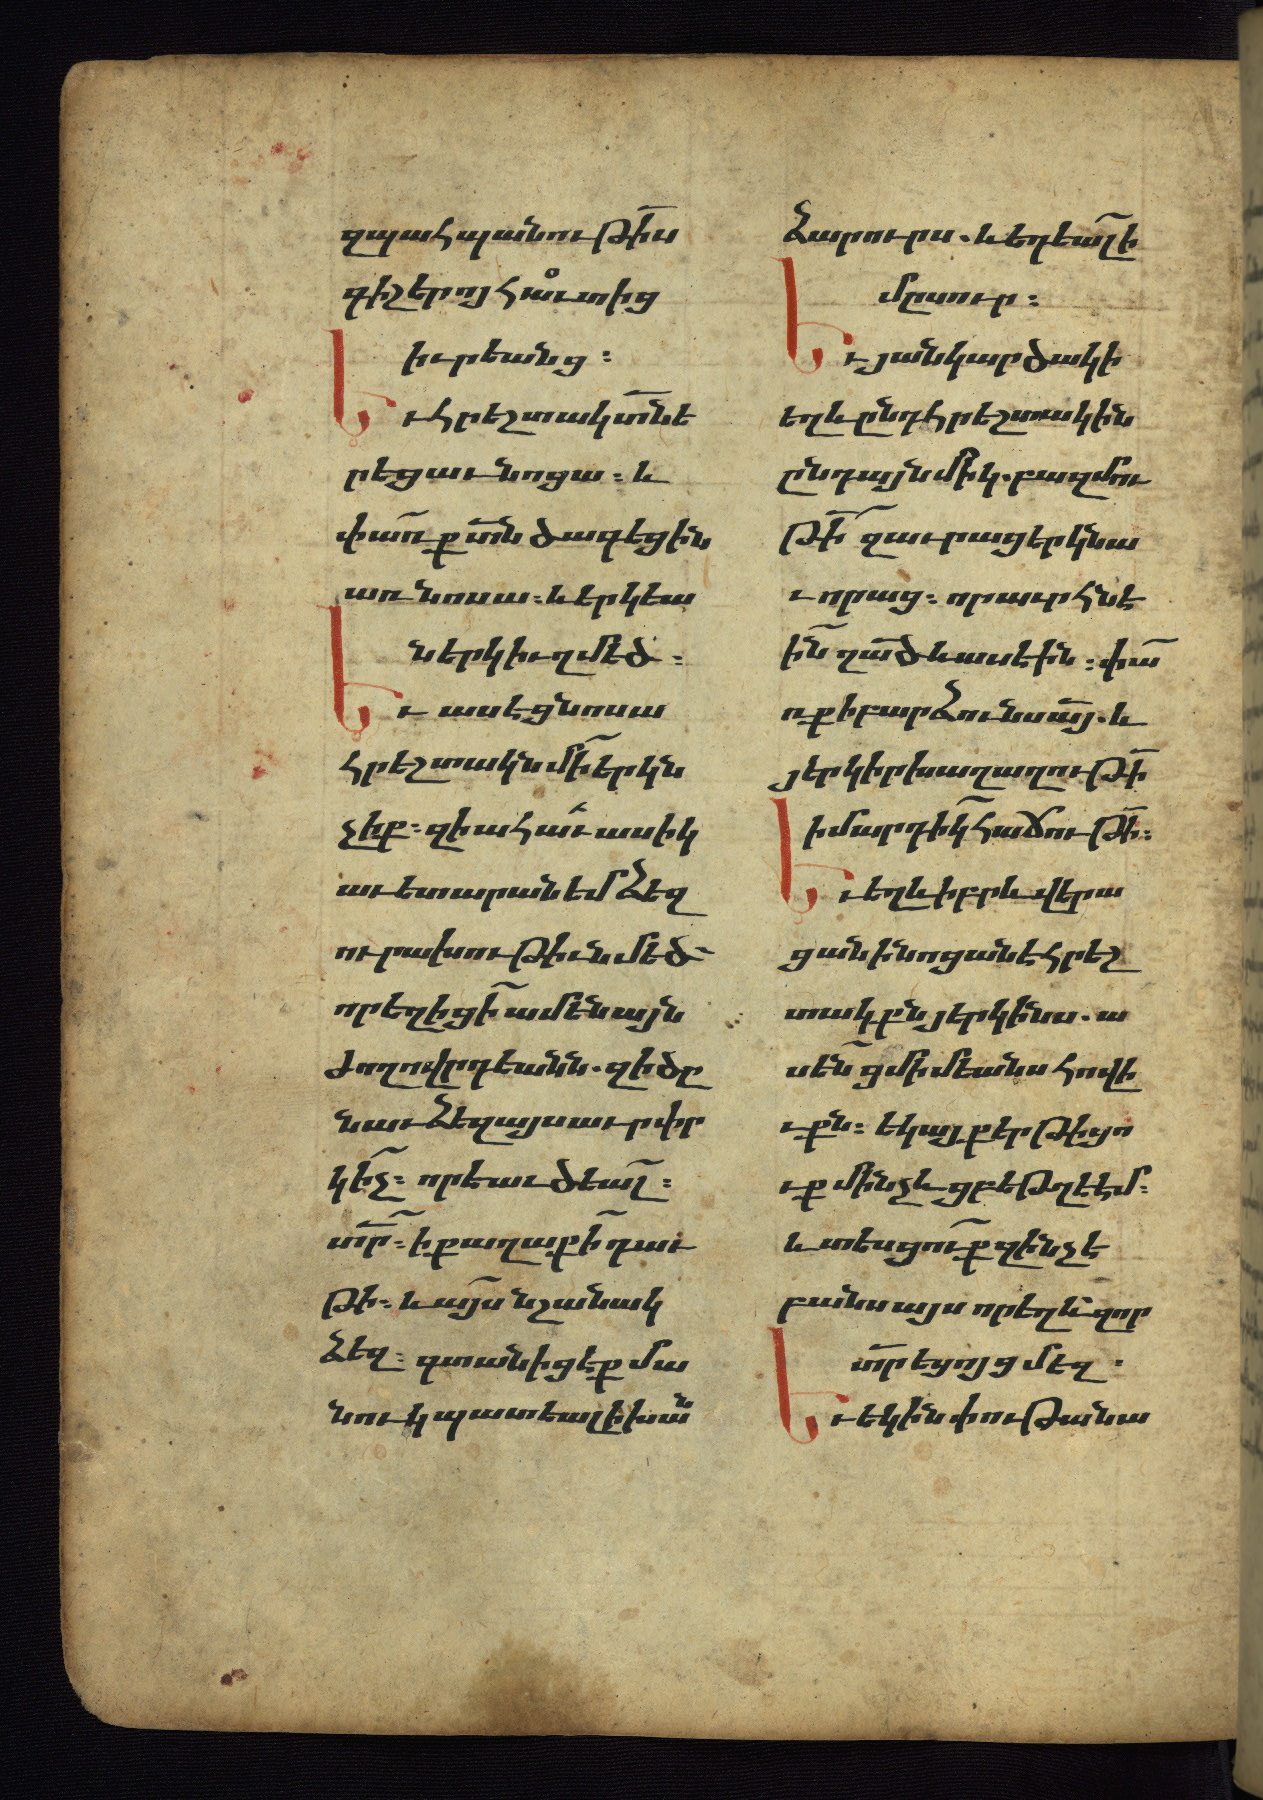 զպահպանութի̄ս
գիշերոյ հաւտից
իւրեանց ։
Եւ հրեշտակ տ̄ն ե
րեցաւ նոցա ։ և
փառ̄ք տ̄ն ծագեցին
առ նոսա ։ և երկեա
ն երկիւղ մեծ ։
Եւ ասէ ցնոսա
հրեշտակն մի̄ երկն
չիք ։ զի ահաւասիկ
աւետարանեմ ձեզ
ուրախութիւն մեծ
որ եղիցի̄ ամենայն
ժողովրդեանն . զի ծը
նաւ ձեզ այսաւր փր
կի̄չ ։ որ է աւծեա̄լ ։
տ̄ր ։ ի քաղաքի̄ դաւ
թի ։ և այս նշանակ
ձեզ ։ գտանիցեք մա
նուկ պատեալ ի խան
ձարուրս . և եդեա̄լ ի
մըսուր ։
Եւ յանկարծակի
եղև ընդ հրեշտակին
ընդ այնմիկ . բազմու
թի̄ զաւրաց երկնա
ւորաց ։ որ աւրհնէ
ի̄ն զա̄ծ և ասէին ։ փա̄
ռք ի բարձունս ա̄յ . և
յերկիր խաղաղութի̄
ի մարդի̄կ հաճութի̄ ։
Եւ եղև իբրև վերա
ցան ի նոցանէ հրեշ
տակքն յերկինս . ա
սե̄ն ցմիմեանս հովի
ւքն ։ եկայք երթիցո
ւք մինչև ցբեթղէէմ ։
և տեսցու̄ք զինչ է
բանս այս որ եղև զոր
տ̄ր եցոյց մեզ ։
Եւ եկին փութանա